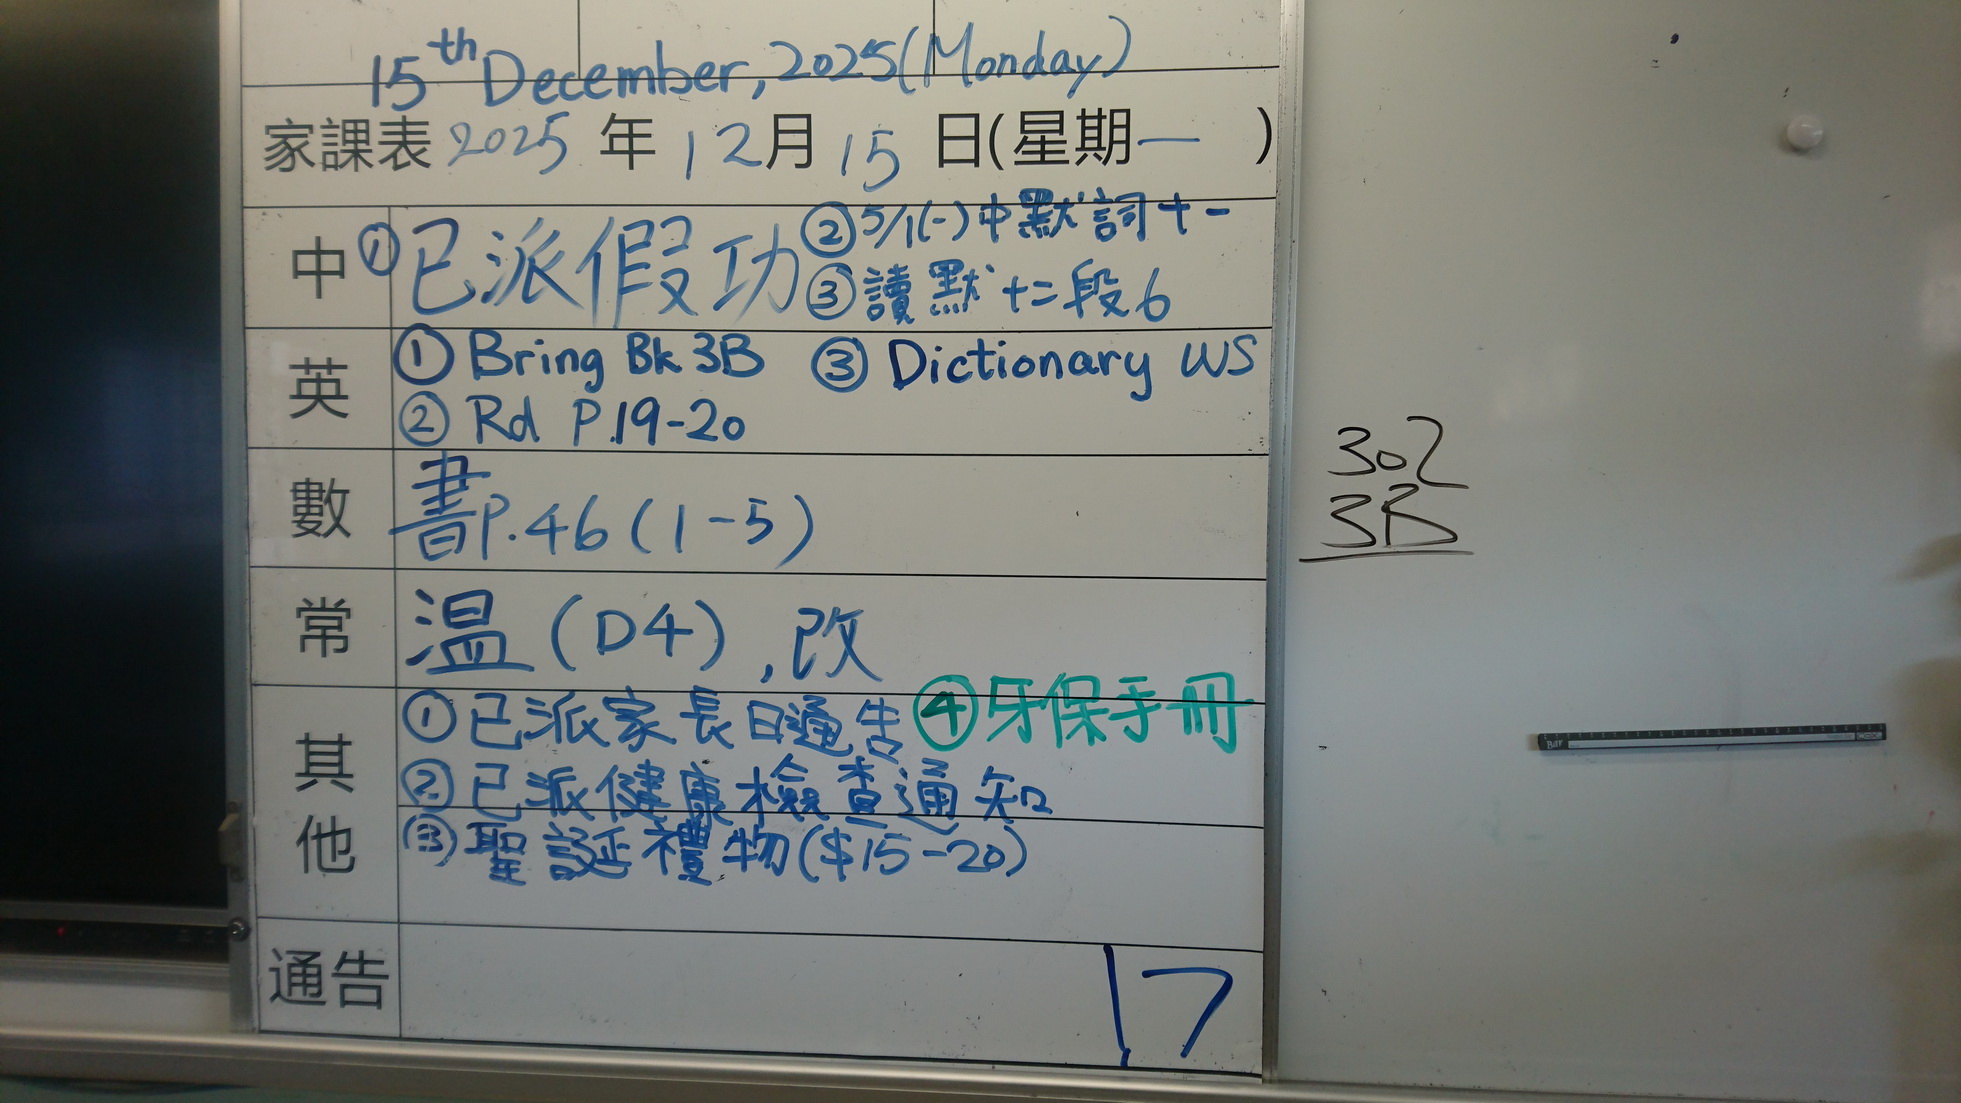 15th December, 2025 (Monday)
家課表 2025 年 12 月 15 日(星期一 )
中 ① 已派假功 ② 5/1(一) 中默詞十一
③ 讀默十二段6
英 ① Bring Bk 3B ③ Dictionary WS
② Rd P.19-20
數 書P.46 (1-5)
常 温 (D4), 改
其他 ① 已派家長日通告 ④ 牙保手冊
② 已派健康檢查通知
③ 聖誕禮物 ($15-20)
通告 17
302
3B